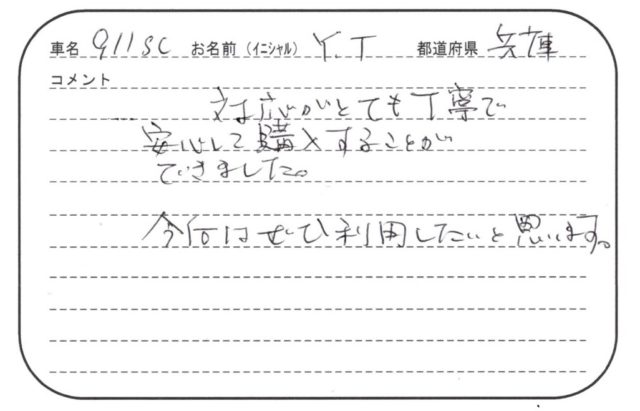 車名 911SC お名前(イニシャル) Y.T 都道府県 兵庫
コメント
対応がとても丁寧で
安心して購入することが
できました。
今何はぜひ利用したいと思います。